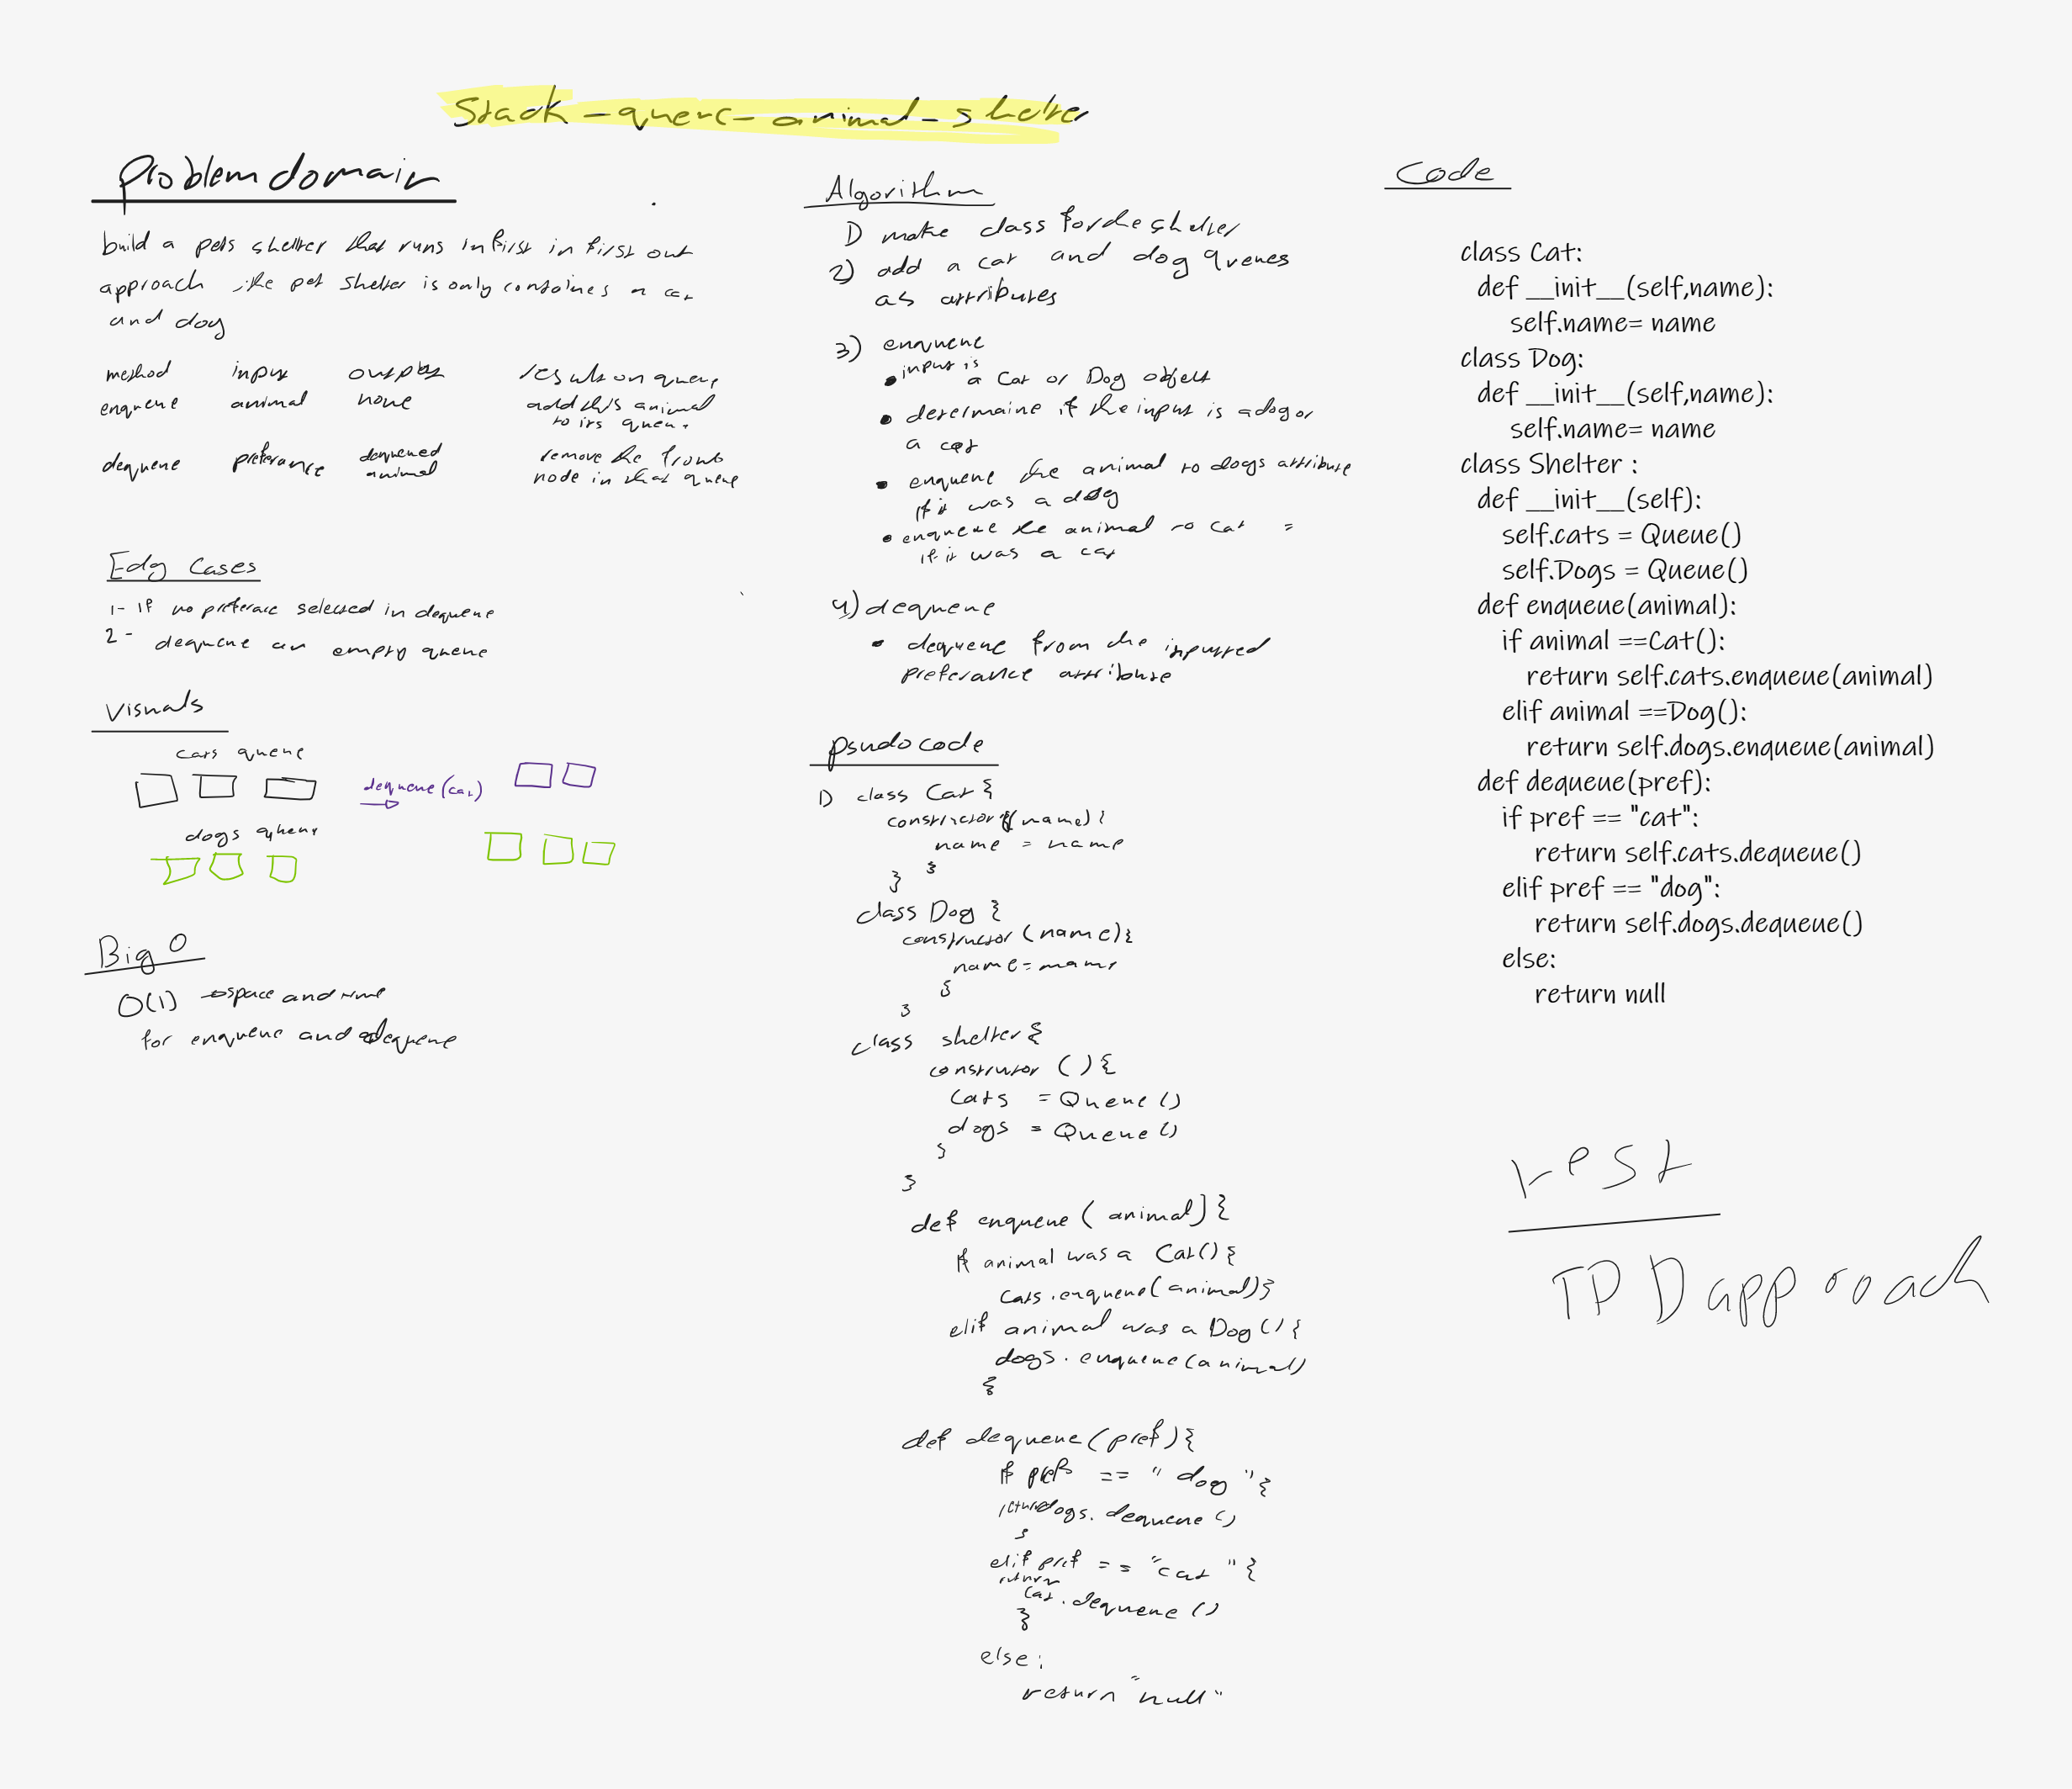 Stack - queue - animal - shelter
Problem domain
build a pets shelter that runs in first in first out
approach , the pet shelter is only containes a cat
and dog
method input output results on queue
enqueue animal none add this animal
to its queue
dequeue preferance dequeued animal remove the front
node in that queue
Edg Cases
1- If no preferance selected in dequeue
2- dequeue an empty queue
Visuals
cats queue
dequeue(cat)
dogs queue
Big O
O(1) → space and time
for enqueue and dequeue
Algorithm
1) make class for the shelter
2) add a cat and dog queues
as attributes
3) enqueue
• input is a Cat or Dog object
• determaine if the input is a dog or
a cat
• enqueue the animal to dogs attribute
if it was a dog
• enqueue the animal to cat =
if it was a cat
4) dequeue
• dequeue from the inputted
preferance attribute
psudo code
1) class Cat {
constructor (name) {
name = name
}
}
class Dog {
constructor (name) {
name = name
}
}
class shelter {
constructor () {
Cats = Queue ()
dogs = Queue ()
}
}
def enqueue ( animal ) {
if animal was a Cat() {
Cats . enqueue (animal) }
elif animal was a Dog () {
dogs . enqueue (animal)
}
def dequeue (pref) {
if pref == " dog " {
return dogs. dequeue ()
}
elif pref == "cat " {
return
Cat . dequeue ()
}
else :
return "null"
Code
class Cat:
def __init__(self,name):
self.name= name
class Dog:
def __init__(self,name):
self.name= name
class Shelter :
def __init__(self):
self.cats = Queue()
self.Dogs = Queue()
def enqueue(animal):
if animal ==Cat():
return self.cats.enqueue(animal)
elif animal ==Dog():
return self.dogs.enqueue(animal)
def dequeue(pref):
if pref == "cat":
return self.cats.dequeue()
elif pref == "dog":
return self.dogs.dequeue()
else:
return null
test
TDD approach